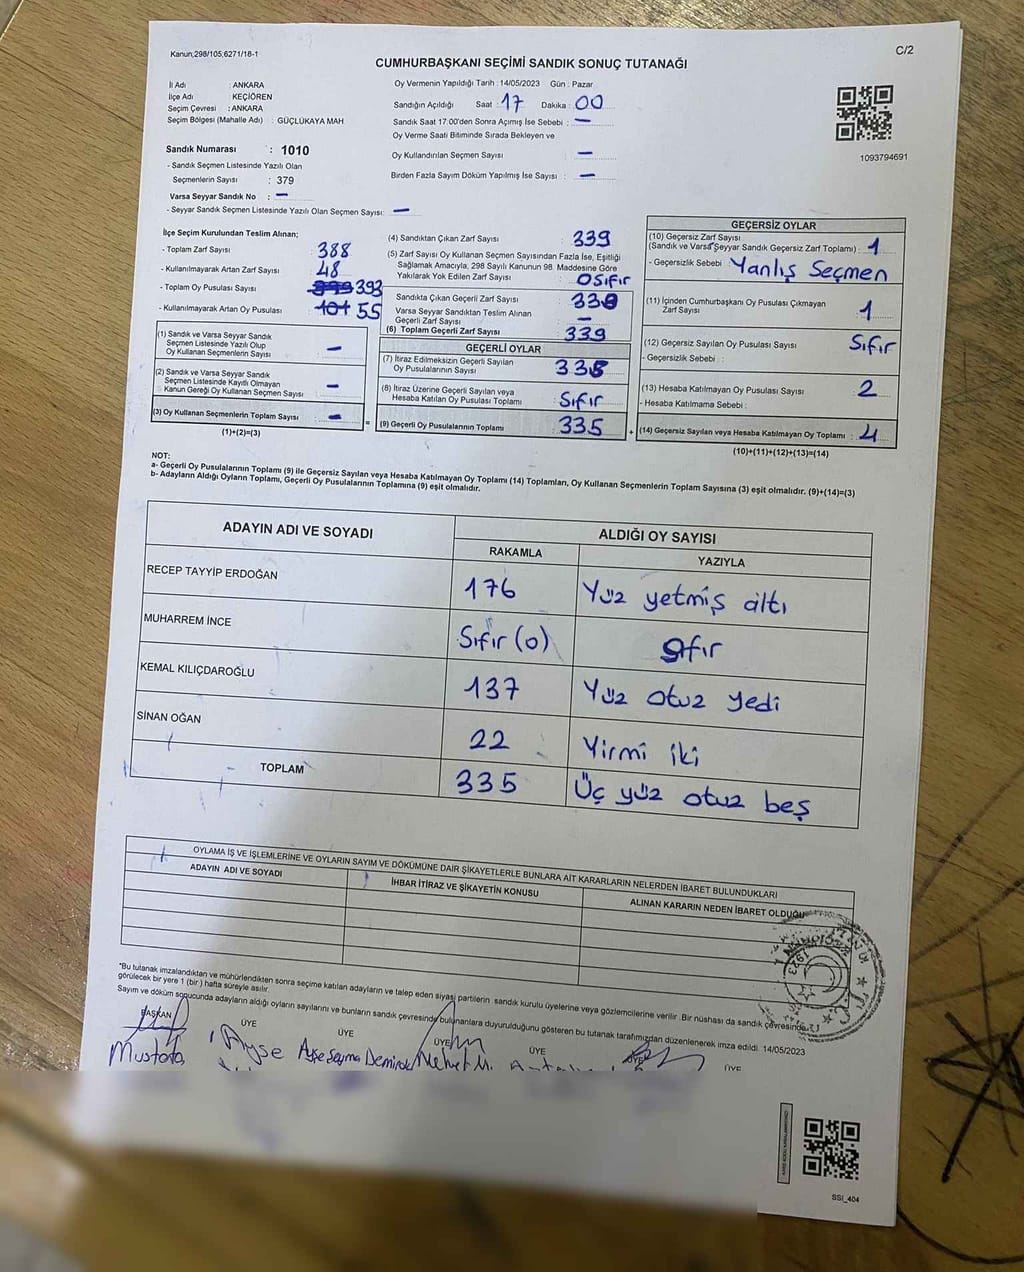 Kanun;298/105;6271/18-1
C/2
CUMHURBAŞKANI SEÇİMİ SANDIK SONUÇ TUTANAĞI
İl Adı : ANKARA
İlçe Adı : KEÇİÖREN
Seçim Çevresi : ANKARA
Seçim Bölgesi (Mahalle Adı) : GÜÇLÜKAYA MAH
Sandık Numarası : 1010
- Sandık Seçmen Listesinde Yazılı Olan
Seçmenlerin Sayısı : 379
Varsa Seyyar Sandık No : –
- Seyyar Sandık Seçmen Listesinde Yazılı Olan Seçmen Sayısı: –
Oy Vermenin Yapıldığı Tarih : 14/05/2023 Gün : Pazar
Sandığın Açıldığı Saat : 17 Dakika : 00
Sandık Saat 17:00'den Sonra Açımış İse Sebebi : –
Oy Verme Saati Bitiminde Sırada Bekleyen ve
Oy Kullandırılan Seçmen Sayısı –
Birden Fazla Sayım Döküm Yapılmış İse Sayısı : –
1093794691
İlçe Seçim Kurulundan Teslim Alınan;
- Toplam Zarf Sayısı 388
- Kullanılmayarak Artan Zarf Sayısı 48
- Toplam Oy Pusulası Sayısı 393
- Kullanılmayarak Artan Oy Pusulası 55
(1) Sandık ve Varsa Seyyar Sandık
Seçmen Listesinde Yazılı Olup
Oy Kullanan Seçmenlerin Sayısı –
(2) Sandık ve Varsa Seyyar Sandık
Seçmen Listesinde Kayıtlı Olmayan
Kanun Gereği Oy Kullanan Seçmen Sayısı –
(3) Oy Kullanan Seçmenlerin Toplam Sayısı –
(1)+(2)=(3)
(4) Sandıktan Çıkan Zarf Sayısı : 339
(5) Zarf Sayısı Oy Kullanan Seçmen Sayısından Fazla İse, Eşitliği
Sağlamak Amacıyla, 298 Sayılı Kanunun 98. Maddesine Göre
Yakılarak Yok Edilen Zarf Sayısı : 0 sıfır
Sandıkta Çıkan Geçerli Zarf Sayısı :
Varsa Seyyar Sandıktan Teslim Alınan
Geçerli Zarf Sayısı –
(6) Toplam Geçerli Zarf Sayısı 339
GEÇERLİ OYLAR
(7) İtiraz Edilmeksizin Geçerli Sayılan
Oy Pusulalarının Sayısı : 335
(8) İtiraz Üzerine Geçerli Sayılan veya
Hesaba Katılan Oy Pusulası Toplamı Sıfır
(9) Geçerli Oy Pusulalarının Toplamı 335
=
+
GEÇERSİZ OYLAR
(10) Geçersiz Zarf Sayısı
(Sandık ve Varsa Seyyar Sandık Geçersiz Zarf Toplamı) : 1
- Geçersizlik Sebebi : Yanlış Seçmen
(11) İçinden Cumhurbaşkanı Oy Pusulası Çıkmayan
Zarf Sayısı : 1
(12) Geçersiz Sayılan Oy Pusulası Sayısı : Sıfır
- Geçersizlik Sebebi :
(13) Hesaba Katılmayan Oy Pusulası Sayısı : 2
- Hesaba Katılmama Sebebi :
(14) Geçersiz Sayılan veya Hesaba Katılmayan Oy Toplamı : 4
(10)+(11)+(12)+(13)=(14)
NOT:
a- Geçerli Oy Pusulalarının Toplamı (9) ile Geçersiz Sayılan veya Hesaba Katılmayan Oy Toplamı (14) Toplamları, Oy Kullanan Seçmenlerin Toplam Sayısına (3) eşit olmalıdır. (9)+(14)=(3)
b- Adayların Aldığı Oyların Toplamı, Geçerli Oy Pusulalarının Toplamına (9) eşit olmalıdır.
ADAYIN ADI VE SOYADI ALDIĞI OY SAYISI
RAKAMLA YAZIYLA
RECEP TAYYİP ERDOĞAN 176 Yüz yetmiş altı
MUHARREM İNCE Sıfır (0) sıfır
KEMAL KILIÇDAROĞLU 137 Yüz otuz yedi
SİNAN OĞAN 22 Yirmi iki
TOPLAM 335 Üç yüz otuz beş
OYLAMA İŞ VE İŞLEMLERİNE VE OYLARIN SAYIM VE DÖKÜMÜNE DAİR ŞİKAYETLERLE BUNLARA AİT KARARLARIN NELERDEN İBARET BULUNDUKLARI
ADAYIN ADI VE SOYADI İHBAR İTİRAZ VE ŞİKAYETİN KONUSU ALINAN KARARIN NEDEN İBARET OLDUĞU
*Bu tutanak imzalandıktan ve mühürlendikten sonra seçime katılan adayların ve talep eden siyasi partilerin sandık kurulu üyelerine veya gözlemcilerine verilir. Bir nüshası da sandık çevresinde
görülecek bir yere 1 (bir) hafta süreyle asılır.
Sayım ve döküm sonucunda adayların aldığı oyların sayılarını ve bunların sandık çevresinde bulunanlara duyurulduğunu gösteren bu tutanak tarafımızdan düzenlenerek imza edildi. 14/05/2023
BAŞKAN ÜYE ÜYE ÜYE ÜYE ÜYE ÜYE
Mustafa Ayşe Ayşe Seyma Mehmet
SSI_404